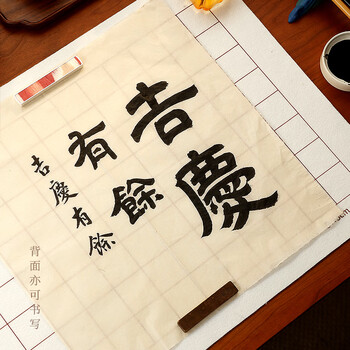 吉慶
有餘
吉慶有餘
背面亦可书写